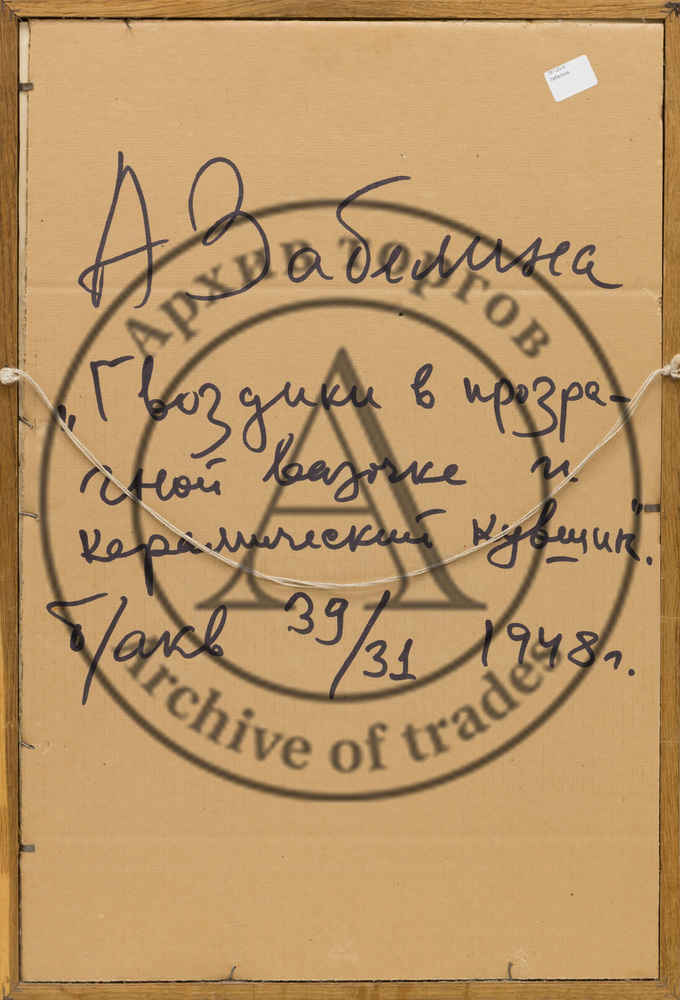 Забелина
А Забелина
„Гвоздики в прозра-
чной вазочке и
керамический кувшин".
б/акв 39/31 1948г.
Архив торгов
Archive of trades